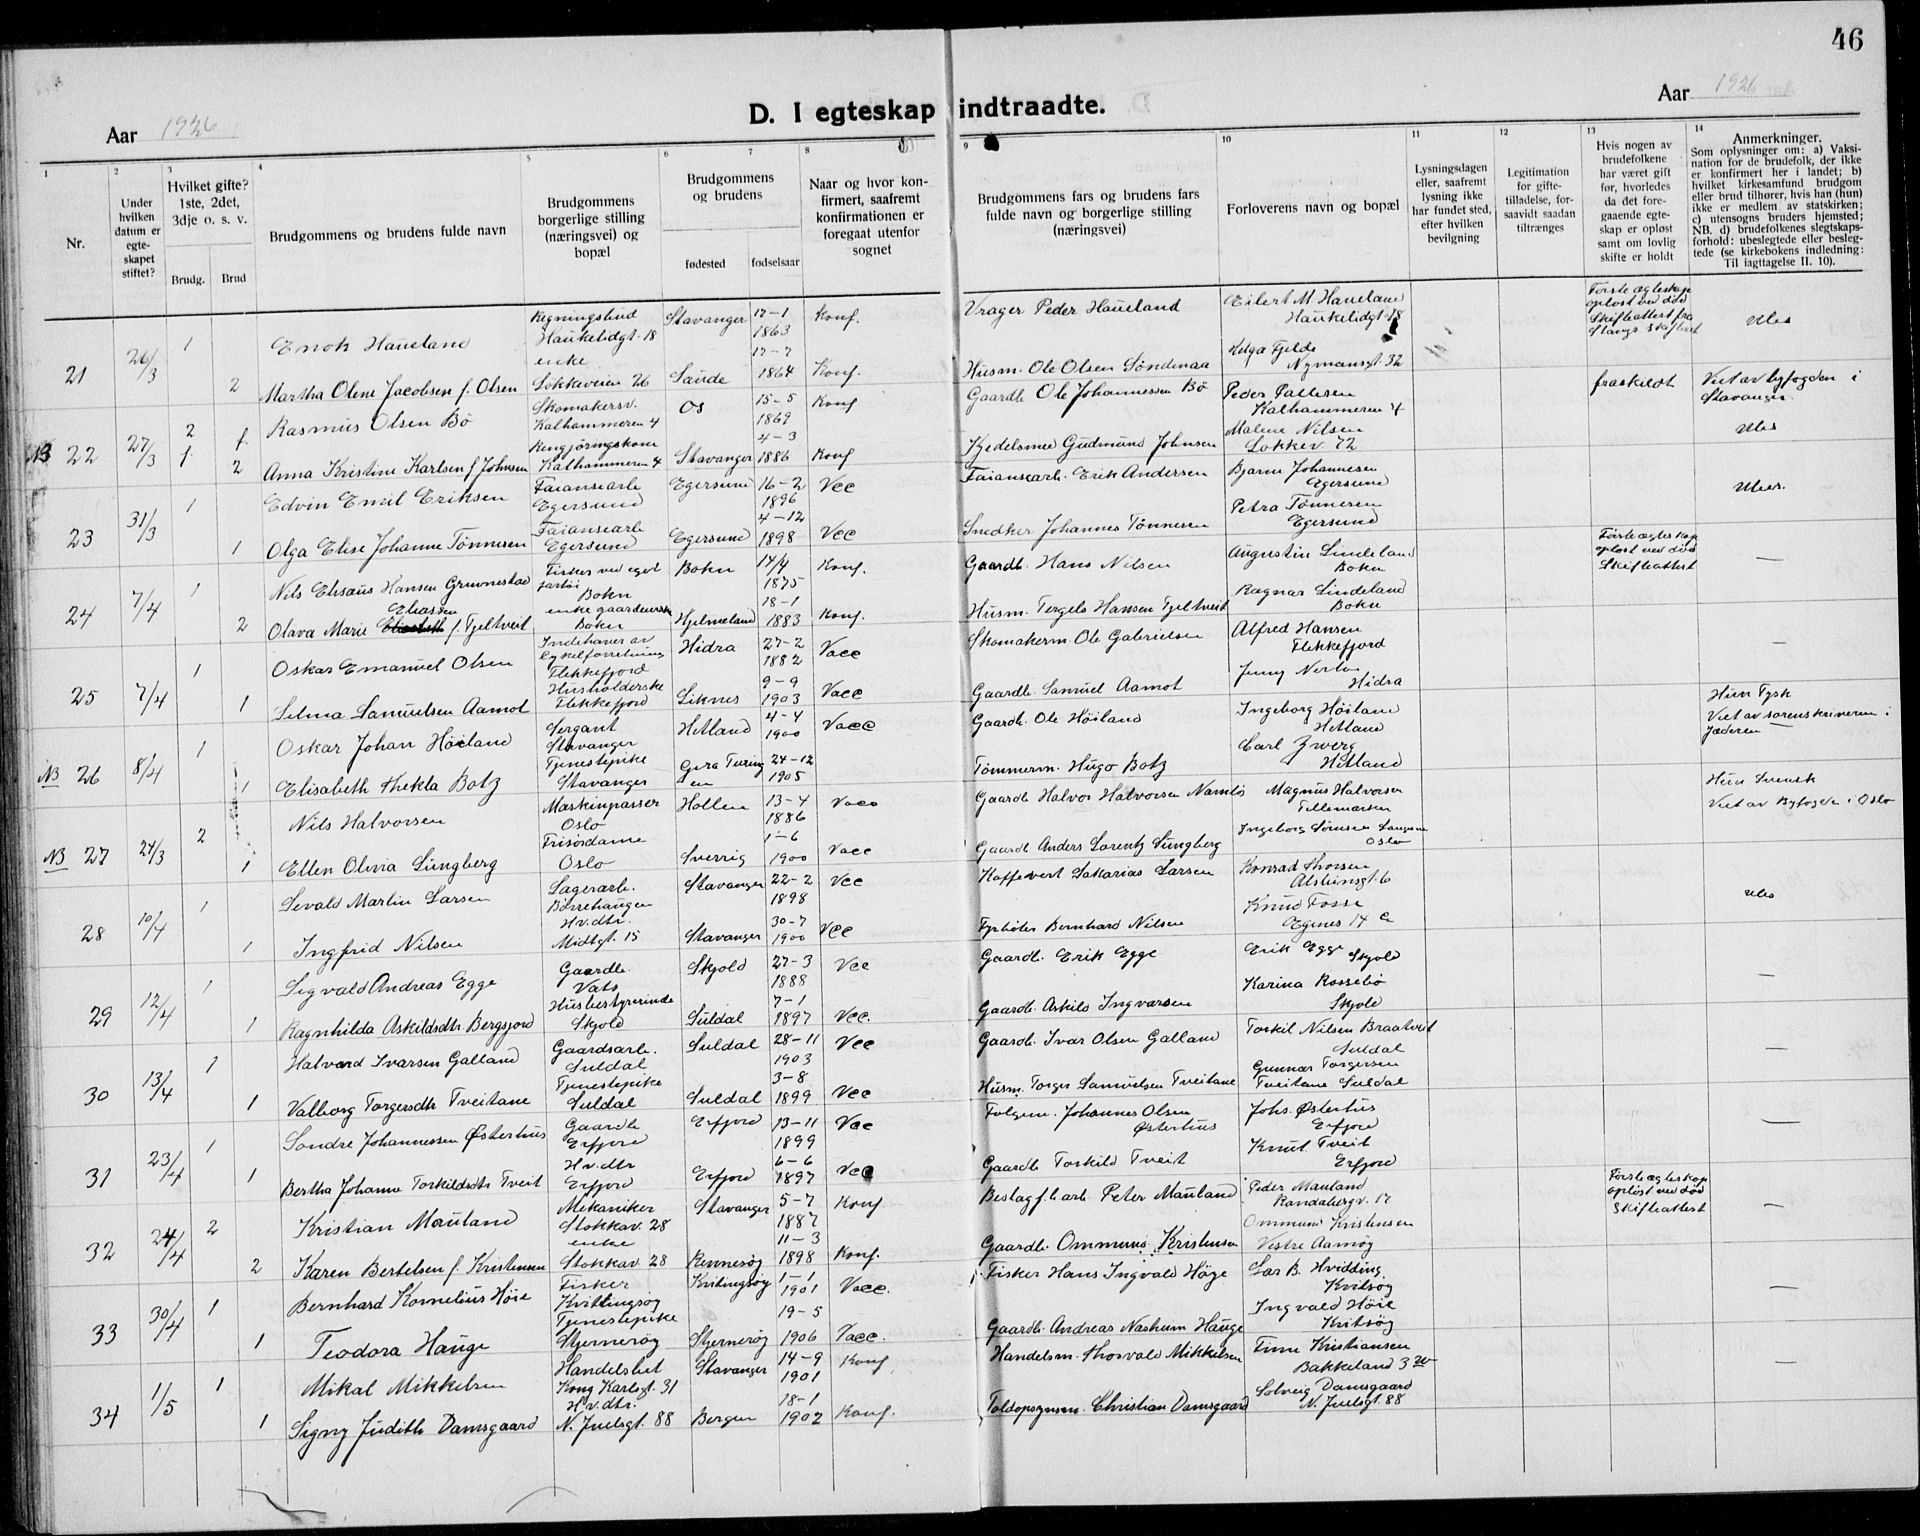 46
D. I egteskap indtraadte.
Aar 1926
Aar 1926
1 2 3 4 5 6 7 8 9 10 11 12 13 14
Nr.
Under hvilken datum er egteskapet stiftet?
Hvilket gifte? 1ste, 2det, 3dje o. s. v.
Brudg. Brud
Brudgommens og brudens fulde navn
Brudgommens borgerlige stilling (næringsvei) og bopæl
Brudgommens og brudens
fødested fødselsaar
Naar og hvor konfirmert, saafremt konfirmationen er foregaat utenfor sognet
Brudgommens fars og brudens fars fulde navn og borgerlige stilling (næringsvei)
Forloverens navn og bopæl
Lysningsdagen eller, saafremt lysning ikke har fundet sted, efter hvilken bevilgning
Legitimation for giftetilladelse, forsaavidt saadan tiltrænges
Hvis nogen av brudefolkene har været gift før, hvorledes da det foregaaende egteskap er opløst samt om lovlig skifte er holdt
Anmerkninger.
Som oplysninger om: a) Vaksination for de brudefolk, der ikke er konfirmert her i landet; b) hvilket kirkesamfund brudgom eller brud tilhører, hvis han (hun) ikke er medlem av statskirken; c) utensogns bruders hjemsted; NB. d) brudefolkenes slegtskapsforhold: ubeslegtede eller beslegtede (se kirkebokens indledning: Til iagttagelse II. 10).
21 26/3 1 Enok Haueland Regningsbud Haukelidgt. 18 Stavanger 17-1 1863 Konf. Vrager Peder Haueland Eilert M Haueland Haukelidgt. 18 Første ægteskap opløst ved død Skifteattest fra
2 Martha Olene Jacobsen f. Olsen enke Løkkeveien 26 Saude 17-7 1864 Konf. Husm. Ole Olsen Søndenaa Helga Fjelde Nymansgt. 32
NB 22 27/3 2 Rasmus Olsen Bö Skomakersv. Kalhammeren 4 Os 15-5 1869 Konf Gaardb Ole Johannessen Bö Peder Pallesen Kalhammeren 4 fraskildt Viet av byfogden i Stavanger
2 Anna Kristine Karlsen f Johnsen Rengjøringskone Kalhammeren 4 Stavanger 4-3 1886 Konf Kjedelsmed Gudmund Johnsen Malene Nilsen Løkkev. 72
23 31/3 1 Edvin Emil Eriksen Faiansearb Egersund Egersund 16-2 1896 Vcc Faiansearb. Erik Andersen Bjarne Johannesen Egersund
1 Olga Elise Johanne Tönnesen Faiansearb Egersund Egersund 4-12 1898 Vcc Snedker Johannes Tönnesen Petra Tönnesen Egersund
24 7/4 1 Nils Elisæus Hansen Grunnestad Fisker ved eget fartöi Bokn Bokn 14/4 1875 Konf. Gaardb. Hans Nilsen Augustin Lindeland Bokn Første ægteskap opløst ved død Skifteattest —
2 Olava Marie Eliassen f. Fjeltveit enke gaardeierske Bokn Hjelmeland 18-1 1883 Konf. Husm. Torgels Hansen Fjeltveit Ragnar Lindeland Bokn
25 7/4 1 Oskar Emanuel Olsen Indehaver av Cykelforretning Flekkefjord Hidra 27-2 1882 Vacc Skomakerm. Ole Gabrielsen Alfred Hansen Flekkefjord —
1 Selma Samuelsen Aamot Husholderske Flekkefjord Liknes 9-9 1903 Vacc Gaardb. Samuel Aamot Jenny Hidra
NB 26 8/4 1 Oskar Johan Höiland Sergant Stavanger Hetland 4-4 1900 Vacc Gaardb. Ole Höiland Ingeborg Höiland Hetland Hun Tysk Viet av sorenskriveren i Jæderen
1 Elisabeth Thekla Botz Tjenestepike Stavanger Gera Turingen 24-12 1905 Tømmerm. Hugo Botz Carl Zwerg Hetland
NB 27 24/3 2 Nils Halvorsen Maskinpasser Oslo Hollen 13-4 1886 Vacc Gaardb Halvor Halvorsen Namlös Magnus Halvorsen Tellemarken Hun Svensk Viet av Byfogden i Oslo
1 Ellen Olivia Lüngberg Frisördame Oslo Sverrig 1-6 1900 Vacc Gaardb Anders Lorentz Lüngberg Ingeborg Oslo
28 10/4 1 Sevald Martin Larsen Lagerarb. Börrehaugen Stavanger 22-2 1898 Vcc Kaffevert Sakarias Larsen Konrad Thorsen Alsteinsgt. 6
1 Ingfrid Nilsen Hv.dtr. Midtgt. 15 Stavanger 30-7 1900 Vcc Fyrböter Bernhard Nilsen Knud Fosse Egenes 14 c
29 12/4 1 Sigvald Andreas Egge Gaardb. Vats Skjold 27-3 1888 Vcc Gaardb. Erik Egge Erik Egge Skjold —
1 Ragnhilda Askildsdtr. Bergsjord Husbestyrerinde Skjold Suldal 7-1 1897 Vcc. Gaardb. Askild Ingvarsen Karina Rossebö Skjold
30 13/4 1 Halvard Ivarsen Galland Gaardsarb. Suldal Suldal 28-11 1903 Vcc Gaardb. Ivar Olsen Galland Torkil Nilsen Braatveit Suldal —
1 Valborg Torgersdtr Tveitane Tjenestepike Suldal Suldal 3-8 1899 Vcc Husm. Torger Samuelsen Tveitane Gunnar Torgersen Tveitane Suldal
31 23/4 1 Sondre Johannessen Østerhus Gaardb Erfjord Erfjord 13-11 1899 Vcc Folgem. Johannes Olsen Østerhus Johs. Østerhus Erfjord —
1 Bertha Johanne Torkildsdtr Tveit Hv.dtr Erfjord Erfjord 6-6 1897 Vcc Gaardb Torkild Tveit Knut Tveit Erfjord
32 24/4 2 Kristian Mauland Mekaniker Stokkav. 28 Stavanger 5-7 1887 Konf. Beslagf.b.arb Peter Mauland Peder Mauland Randabergv. 17 Første ægteskap opløst ved død Skifteattest —
2 Karen Bertelsen f. Kristensen enke Stokkav 28 Rennesöy 11-3 1898 Konf. Gaardb. Ommund Kristensen Ommund Kristensen Vestre Aamöy
33 30/4 1 Bernhard Kornelius Höie Fisker Kvittingsöy Kvitingsöy 1-1 1901 Vacc. Fisker Hans Ingvald Höge Lar B. Hvidding Kvitsöy —
1 Teodora Hauge Tjenestepike Stjernerøy Stjernerøy 19-5 1906 Vacc. Gaardb. Andreas Naskum Hauge Ingvald Höie Kvitsöy
34 1/5 1 Mikal Mikkelsen Handelsbet Kong Karlsgt. 31 Stavanger 14-9 1901 Konf Handelsm. Thorvald Mikkelsen Finn Kristiansen Bakkeland 3 —
1 Signy Judith Damsgaard Hv.dtr. N. Juelsgt. 88 Bergen 18-1 1902 Konf. Toldopsynsm. Christian Damsgaard Solveig Damsgaard N. Juelsgt. 88